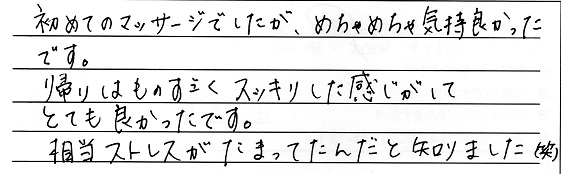 初めてのマッサージでしたが、めちゃめちゃ気持良かった
です。
帰りはものすごくスッキリした感じがして
とても良かったです。
相当ストレスがたまってたんだと知りました(笑)